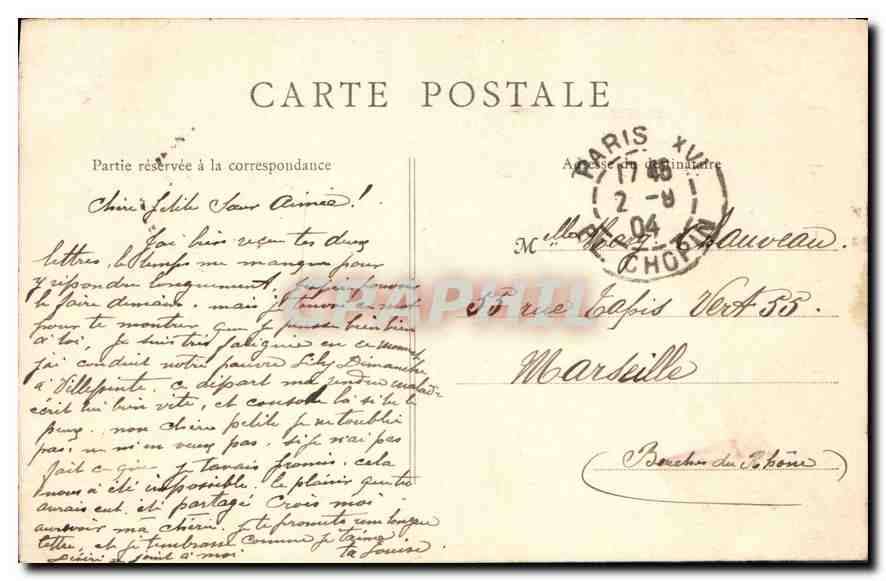 CARTE POSTALE
Partie réservée à la correspondance
Adresse du destinataire
PARIS XVI
17 45
2 -9
04
CHOPIN
Chère petite Sœur Aimée!
J'ai bien reçu tes deux
lettres, le temps me manque pour
y répondre longuement,
le faire demain. mais je t'envoi
pour te montrer que je pense bien bien
à toi, Je suis très fatiguée en ce moment
j'ai conduit notre pauvre Lily Dimanche
à Villepinte. ce départ m'a rendue malade
écrit lui bien vite, et console la si tu le
peux. non chère petite je ne t'oublie
pas, ne m'en veux pas, si je n'ai pas
fait ce que je t'avais promis. cela
nous a été impossible. le plaisir que tu
aurais eut, été partagé Crois moi
aurevoir ma chérie. Je te promets une longue
lettre, et je t'embrasse comme je t'aime
ta Louise.
Désiré se joint à moi
M elle Chauveau.
55 rue Tapis Vert 55.
Marseille
(Bouches du Rhône)
CPAPHIL